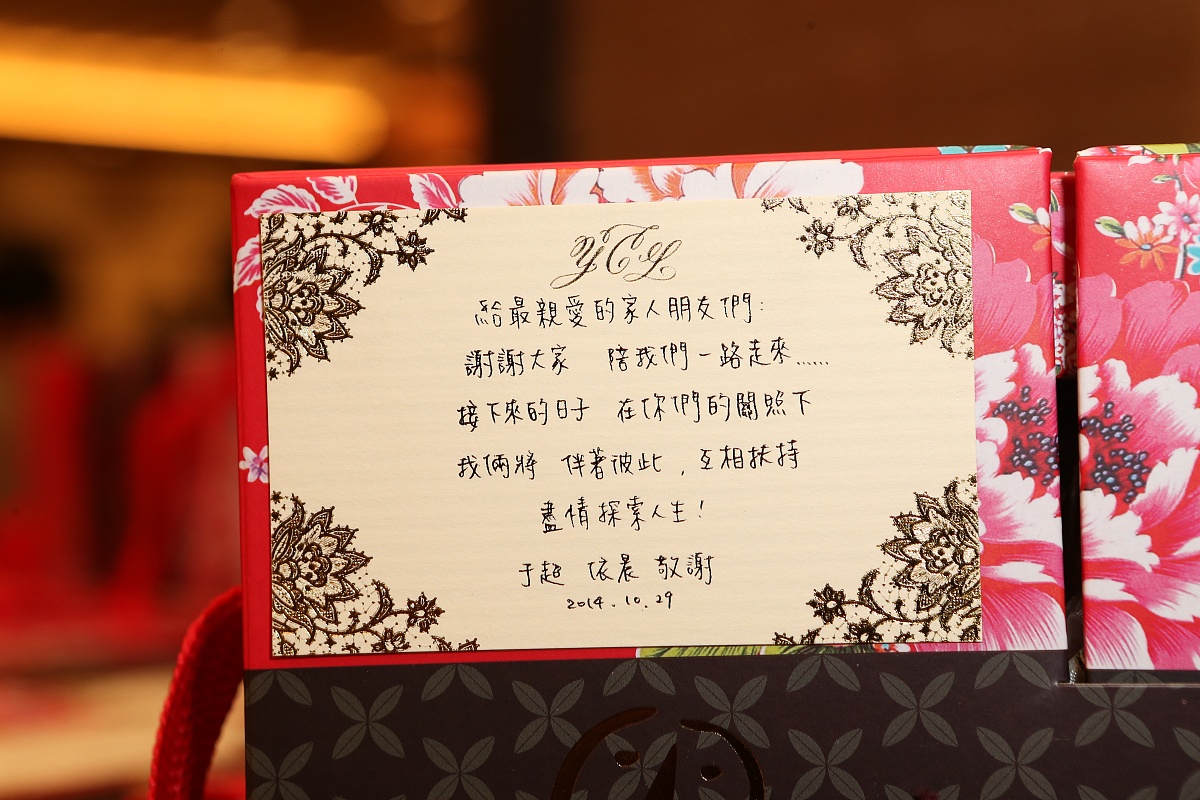 給最親愛的家人朋友們:
謝謝大家 陪我們一路走來......
接下來的日子 在你們的關照下
我倆將 伴著彼此,互相扶持
盡情探索人生!
于超 依晨 敬謝
2014.10.29